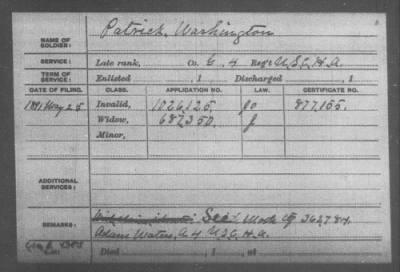 NAME OF SOLDIER: Patrick, Washington
SERVICE: Late rank, Co. C, 4 Reg't U.S.C.H.A.
TERM OF SERVICE: Enlisted , 1 Discharged , 1
DATE OF FILING. CLASS. APPLICATION NO. LAW. CERTIFICATE NO.
1891 May 25 Invalid, 1026,125. 877,155.
Widow, 687,350.
Minor,
ADDITIONAL SERVICES:
REMARKS: See 362,784.
Adam Waters, A 4 U.S.C.H.A.
Died , 1 , at